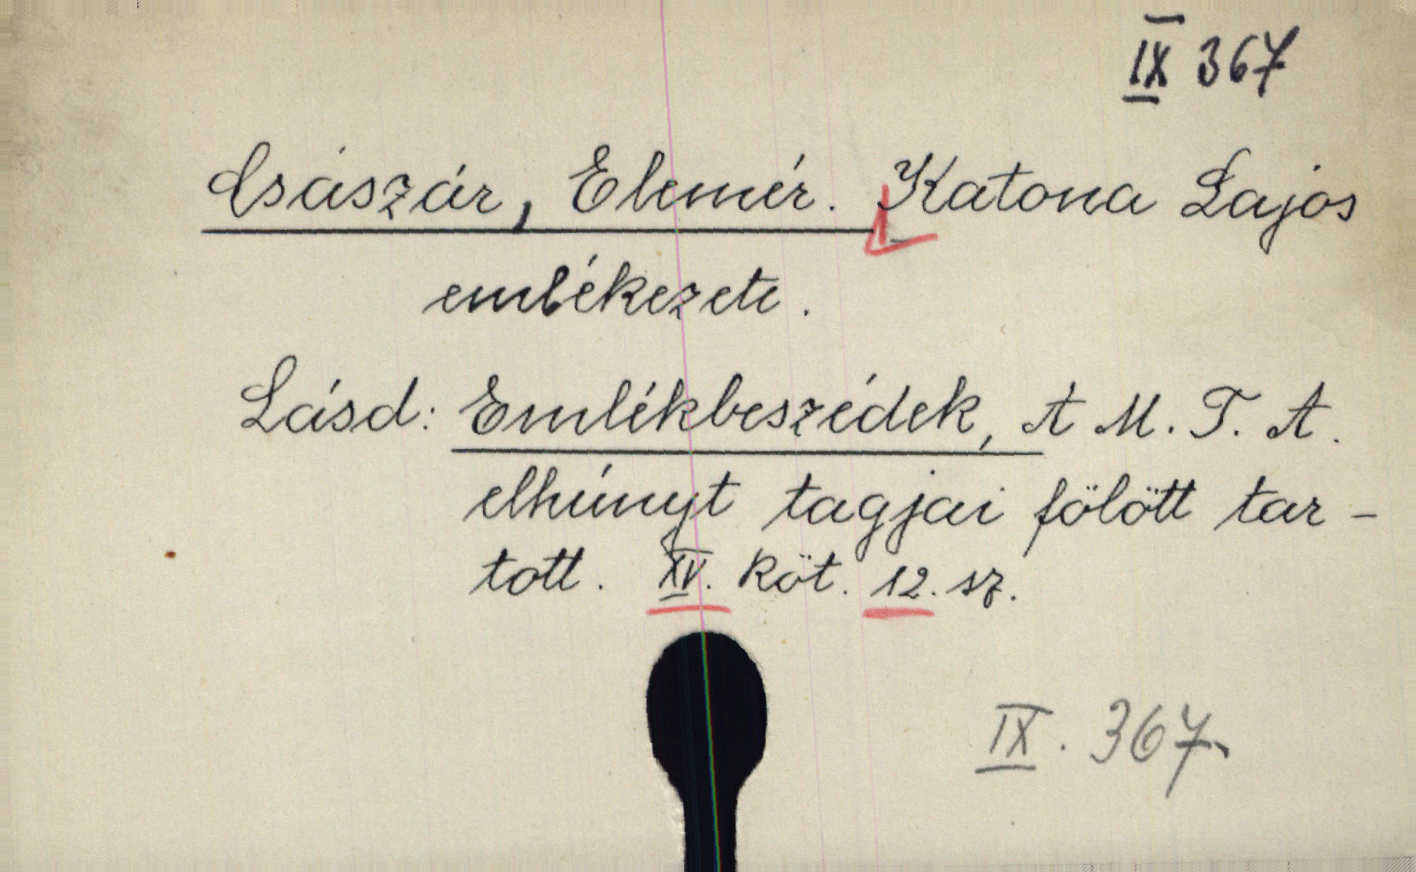 IX 367
Császár, Elemér. Katona Lajos
emlékezete.
Lásd: Emlékbeszédek, A M. T. A.
elhúnyt tagjai fölött tar-
tott. XV. köt. 12. sz.
IX. 367.